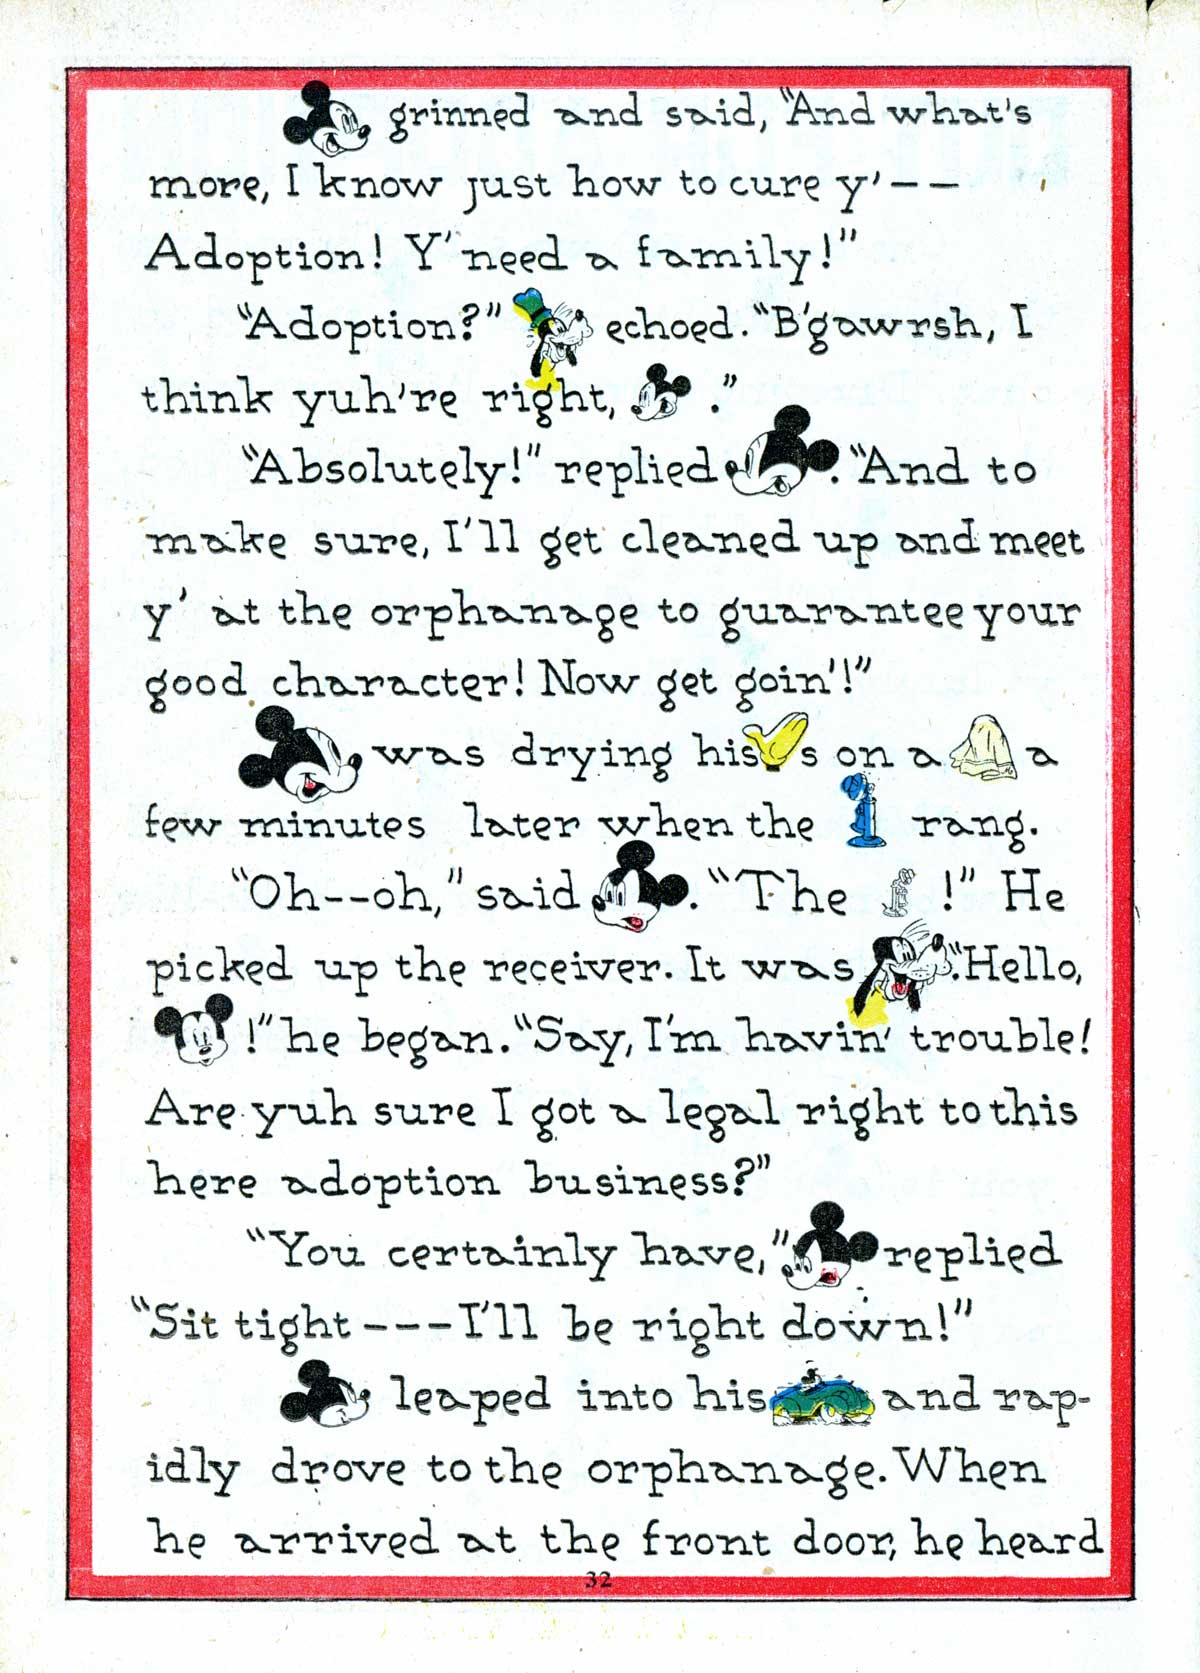 grinned and said, "And what's
more, I know just how to cure y'--
Adoption! Y' need a family!"
"Adoption?" echoed. "B'gawrsh, I
think yuh're right, ."
"Absolutely!" replied . "And to
make sure, I'll get cleaned up and meet
y' at the orphanage to guarantee your
good character! Now get goin'!"
was drying his s on a a
few minutes later when the rang.
"Oh--oh," said . "The !" He
picked up the receiver. It was . "Hello,
!" he began. "Say, I'm havin' trouble!
Are yuh sure I got a legal right to this
here adoption business?"
"You certainly have," replied
"Sit tight---I'll be right down!"
leaped into his and rap-
idly drove to the orphanage. When
he arrived at the front door, he heard
32